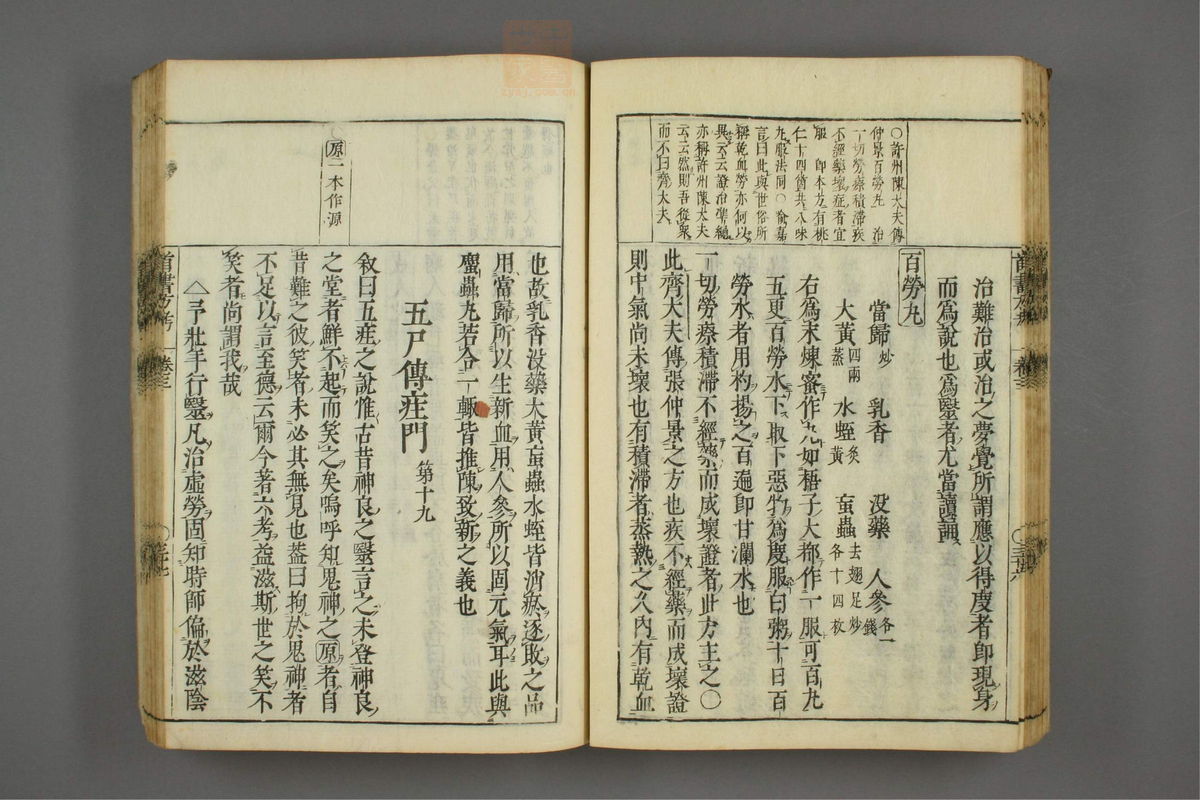 ○許州陳大夫傳
仲景百勞丸 治
一切勞瘵積滯疾
不經藥壞症者宜
服 卽本方有桃
仁十四箇共八味
丸服法同○喻嘉
言曰此與世俗所
稱乾血勞亦何以
異云云證治準繩
亦稱許州陳大夫
云云然則吾從衆
而不曰齊大夫
治難治或治之夢覺所謂應以得度者卽現身
而爲說也爲毉者尤當讀誦
百勞丸
當歸炒 乳香 没藥 人參各一錢
大黃四兩蒸 水蛭炙黃 䖟蟲去翅足炒各十四枚
右爲末煉蜜作丸如梧子大都作一服可百丸
五更百勞水下取下惡物爲度服白粥十日百
勞水者用杓揚之百遍卽甘瀾水也
一切勞瘵積滯不經藥而成壞證者此方主之○
此齊大夫傳張仲景之方也疾不經藥而成壞證
則中氣尚未壞也有積滯者蒸熱之久內有乾血
也故乳香没藥大黃䖟蟲水蛭皆消瘀逐敗之品
用當歸所以生新血用人參所以固元氣耳此與
䗪蟲丸若合一轍皆推陳致新之義也
五尸傳疰門 第十九
敘曰五疰之說惟古昔神良之毉言之未登神良
之堂者鮮不起而笑之矣嗚呼知鬼神之原者自
昔難之彼笑者未必其無見也葢曰拘於鬼神者
不足以言至德云爾今著六考益滋斯世之笑不
笑者尚謂我哉
△予壯手行毉凡治虛勞固知時師偏於滋陰
○原一本作源
首書方考 卷三 ○三十六
首書方考 卷三 ○三十七